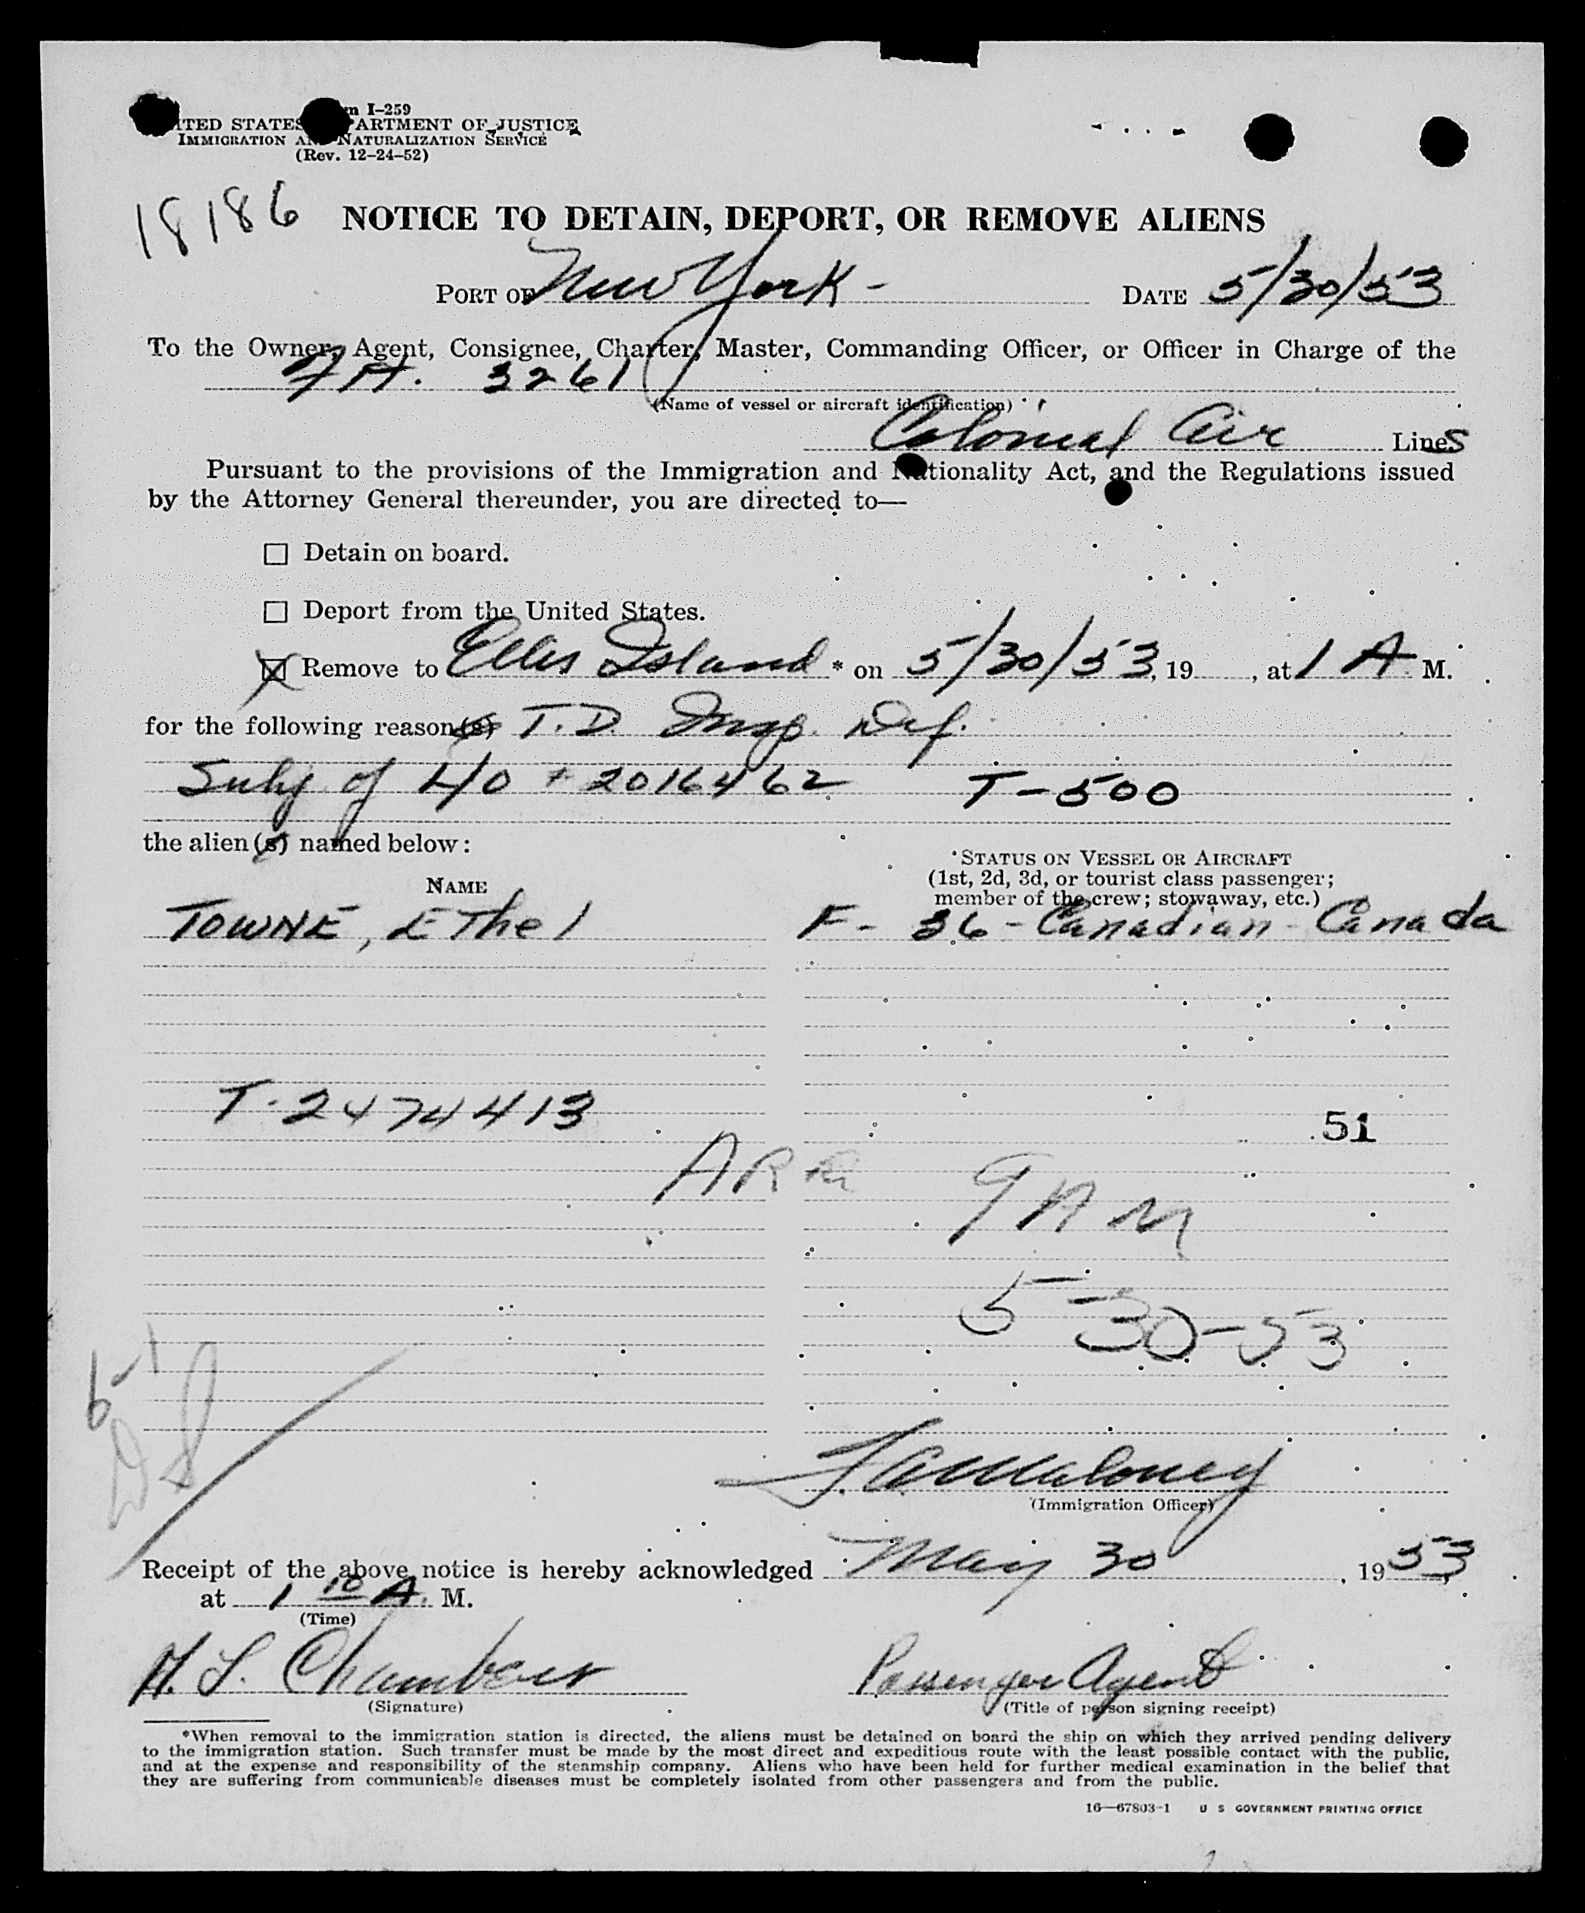 I-259
UNITED STATES DEPARTMENT OF JUSTICE
IMMIGRATION AND NATURALIZATION SERVICE
(Rev. 12-24-52)
18186
NOTICE TO DETAIN, DEPORT, OR REMOVE ALIENS
PORT OF New York - DATE 5/30/53
To the Owner, Agent, Consignee, Charter, Master, Commanding Officer, or Officer in Charge of the
3261
(Name of vessel or aircraft identification)
Colonial Air Lines
Pursuant to the provisions of the Immigration and Nationality Act, and the Regulations issued
by the Attorney General thereunder, you are directed to—
☐ Detain on board.
☐ Deport from the United States.
☒ Remove to Ellis Island * on 5/30/53, 19 , at 1 A. M.
for the following reason(s) T.D. Insp. Def.
Subj. of 40 + 2016462 T-500
the alien(s) named below:
NAME
STATUS ON VESSEL OR AIRCRAFT
(1st, 2d, 3d, or tourist class passenger;
member of the crew; stowaway, etc.)
TOWNE, Ethel F - 36 - Canadian - Canada
T-2474413
51
ARR 9 AM
5-30-53
6-1
(Immigration Officer)
Receipt of the above notice is hereby acknowledged May 30, 1953,
at 1 10 A. M.
(Time)
H. S. Chambers Passenger Agent
(Signature) (Title of person signing receipt)
*When removal to the immigration station is directed, the aliens must be detained on board the ship on which they arrived pending delivery
to the immigration station. Such transfer must be made by the most direct and expeditious route with the least possible contact with the public,
and at the expense and responsibility of the steamship company. Aliens who have been held for further medical examination in the belief that
they are suffering from communicable diseases must be completely isolated from other passengers and from the public.
16—67803-1 U S GOVERNMENT PRINTING OFFICE